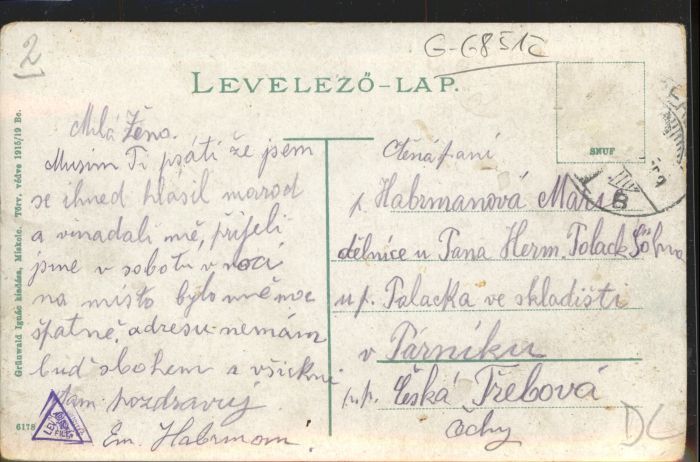 2
G-G851c
LEVELEZŐ-LAP.
Milá Ženo.
Musím Ti psáti že jsem
se ihned hlásil marod
a vinadali mě, přijeli
jsme v sobotu v noci
na místo bylo mně moc
špatně, adresu nemám
buď sbohem a všickni
tam pozdravuj
Em. Habrmom.
SNUF
B
Ctěná paní
Habrmanová Marie
dělnice u Pana Herm. Polack Söhne
u p. Polacka ve skladišti
v Párníku
Česká Třebová
Čechy
DC
Grünwald Ignác kiadása, Miskolc. Törv. védve 1915/19 Be.
6178